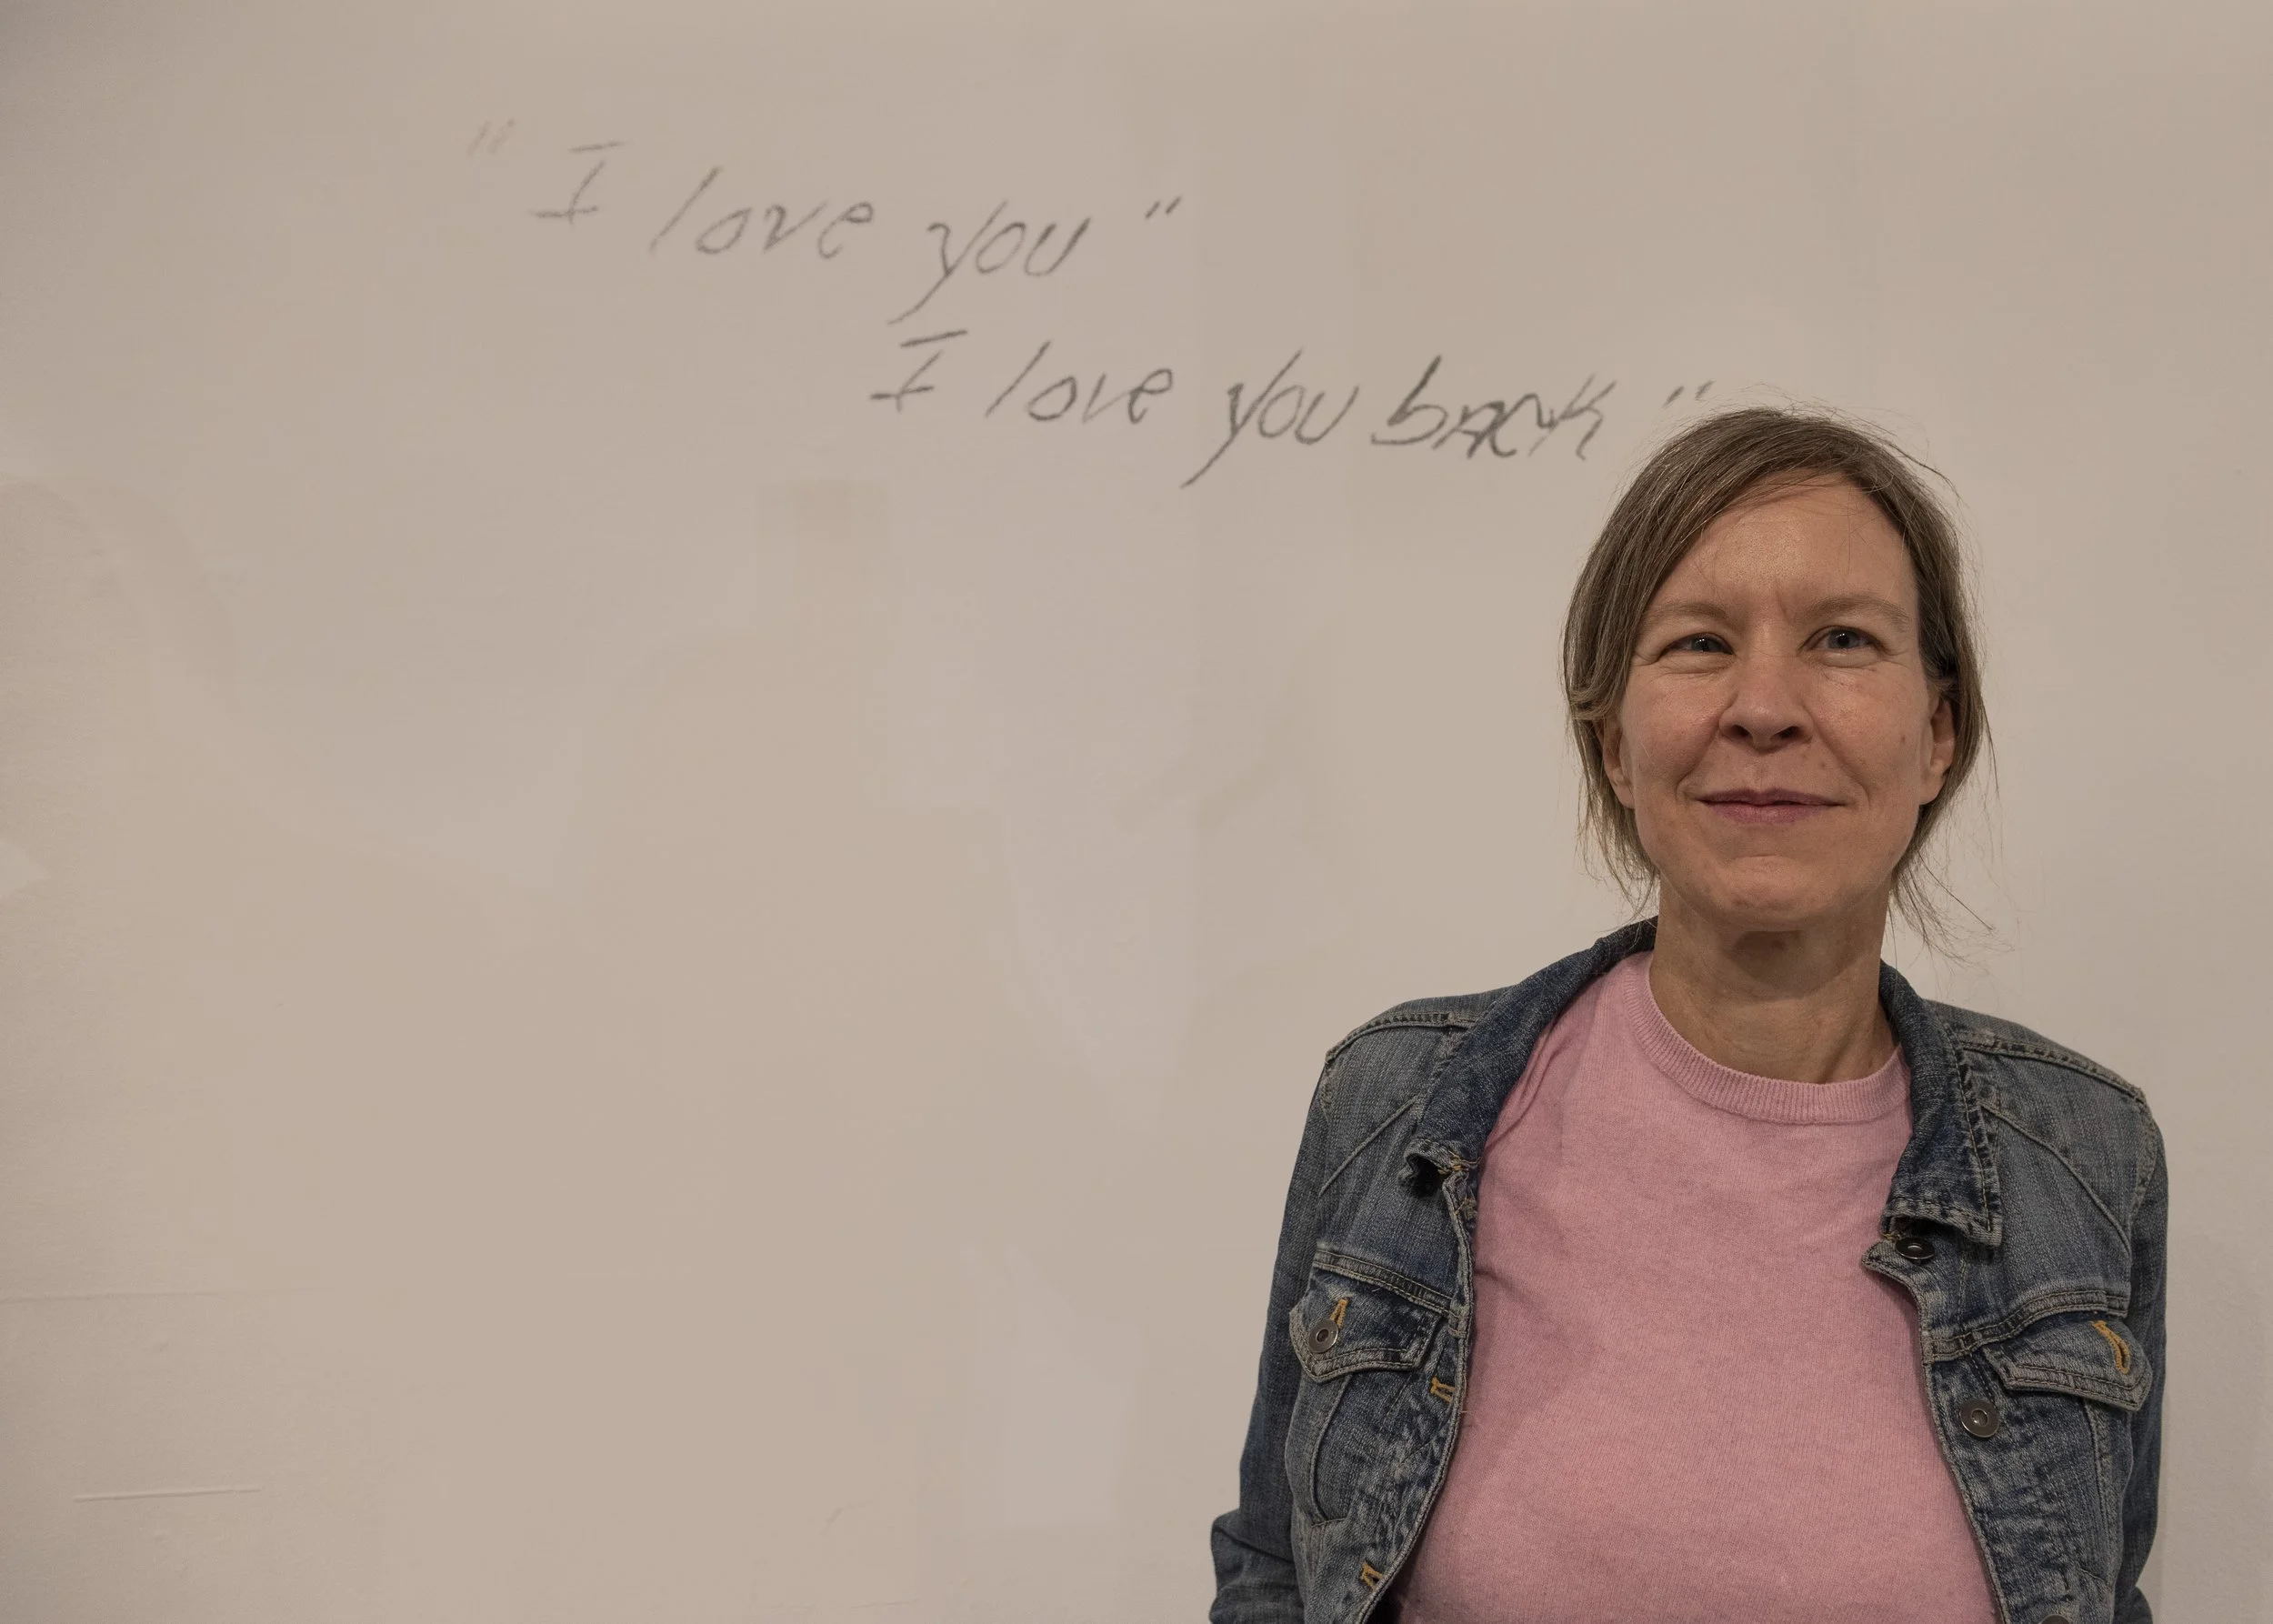 "I love you"
I love you back"